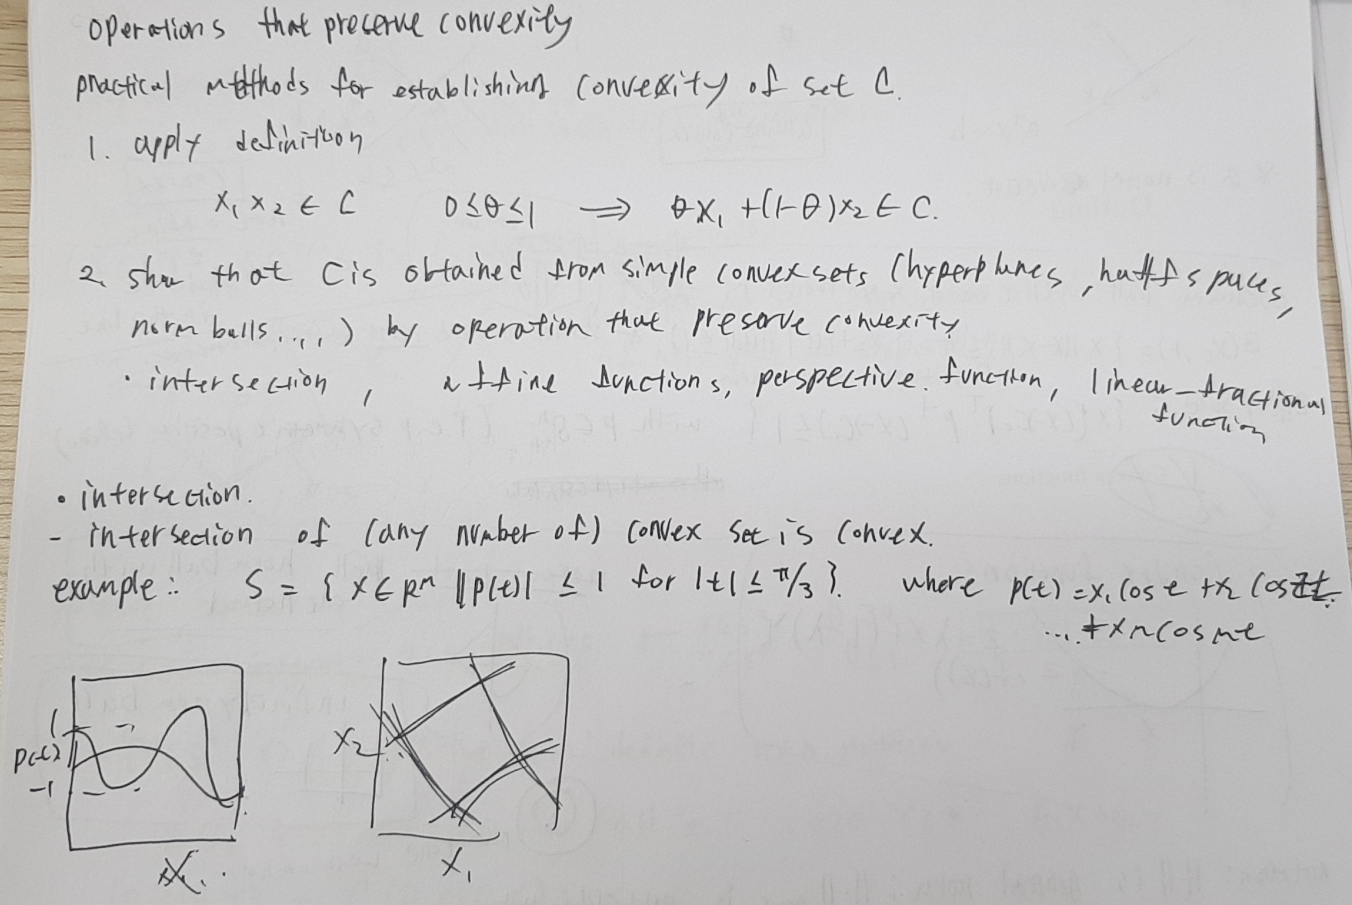 operations that preserve convexity
practical methods for establishing convexity of set C.
1. apply definition
x₁ x₂ ∈ C 0≤θ≤1 ⟹ θx₁ +(1-θ)x₂ ∈ C.
2. show that C is obtained from simple convex sets (hyperplanes, halfspaces,
norm balls....) by operation that preserve convexity
· intersection, affine functions, perspective function, linear-fractional
function
• intersection.
- intersection of (any number of) convex set is convex.
example: S = { x ∈ Rᵐ ||p(t)| ≤ 1 for |t| ≤ π/3 }. where p(t) = x₁ cos t + x₂ cos 2t.
... + xₙ cos nt
1
p(t)
-1
x₂
x₁